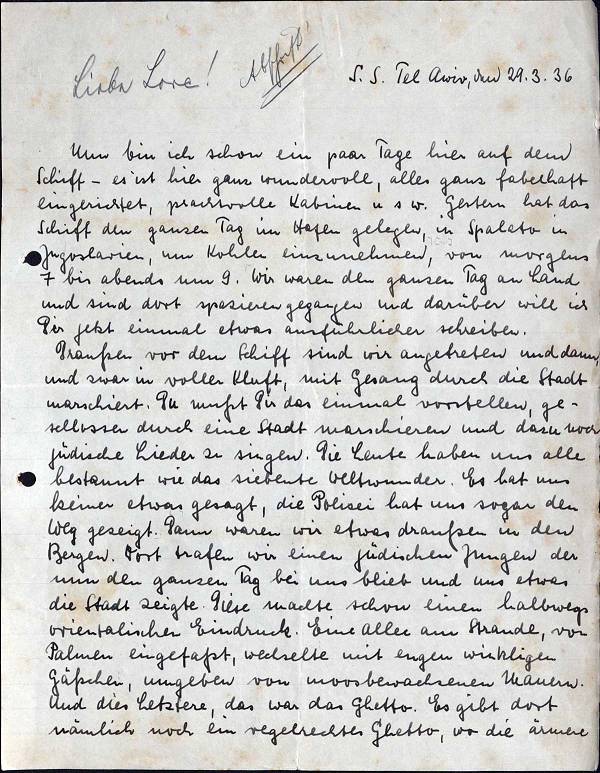 Liebe Lore! Abschrift!
S. S. Tel Aviv, den 29.3.36
Nun bin ich schon ein paar Tage hier auf dem
Schiff – es ist hier ganz wundervoll, alles ganz fabelhaft
eingerichtet, prachtvolle Kabinen u s w. Gestern hat das
Schiff den ganzen Tag im Hafen gelegen, in Spalato in
Jugoslavien, um Kohlen einzunehmen, von morgens
7 bis abends um 9. Wir waren den ganzen Tag an Land
und sind dort spazierengegangen und darüber will ich
Dir jetzt einmal etwas ausführlicher schreiben.
Draußen vor dem Schiff sind wir angetreten und dann,
und zwar in voller Kluft, mit Gesang durch die Stadt
marschiert. Du mußt Dir das einmal vorstellen, ge-
schlossen durch eine Stadt marschieren und dazu noch
jüdische Lieder zu singen. Die Leute haben uns alle
bestaunt wie das siebente Weltwunder. Es hat uns
keiner etwas gesagt, die Polizei hat uns sogar den
Weg gezeigt. Dann waren wir etwas draußen in den
Bergen. Dort trafen wir einen jüdischen Jungen der
nun den ganzen Tag bei uns blieb und uns etwas
die Stadt zeigte. Diese machte schon einen halbwegs
orientalischen Eindruck. Eine Allee am Strande, von
Palmen eingefaßt, wechselte mit engen winkligen
Gäßchen, umgeben von moosbewachsenen Mauern.
Und dies Letztere, das war das Ghetto. Es gibt dort
nämlich noch ein regelrechtes Ghetto, wo die ärmere